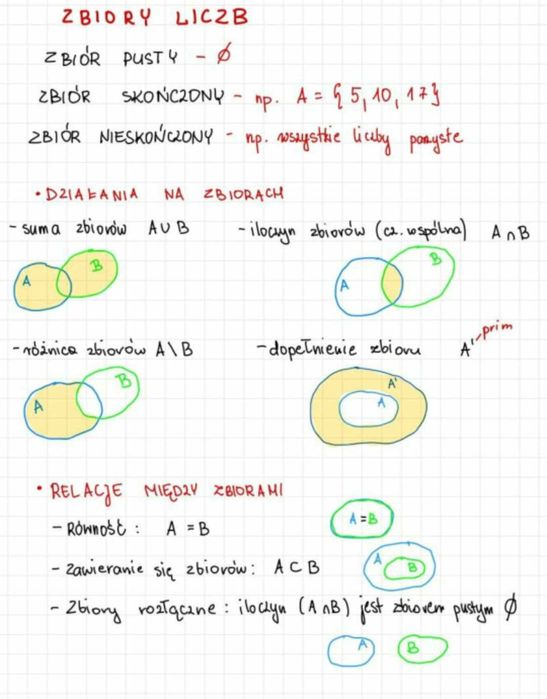 ZBIORY LICZB
ZBIÓR PUSTY - Ø
ZBIÓR SKOŃCZONY - np. A = { 5, 10, 17}
ZBIÓR NIESKOŃCZONY - np. wszystkie liczby parzyste
• DZIAŁANIA NA ZBIORACH
- suma zbiorów A ∪ B
- iloczyn zbiorów (cz. wspólna) A ∩ B
A B
A B
- różnica zbiorów A \ B
- dopełnienie zbioru A' prim
A B
A' A
• RELACJE MIĘDZY ZBIORAMI
- RÓWNOŚĆ : A = B
A = B
- Zawieranie się zbiorów: A ⊂ B
A B
- Zbiory rozłączne : iloczyn (A ∩ B) jest zbiorem pustym Ø
A B